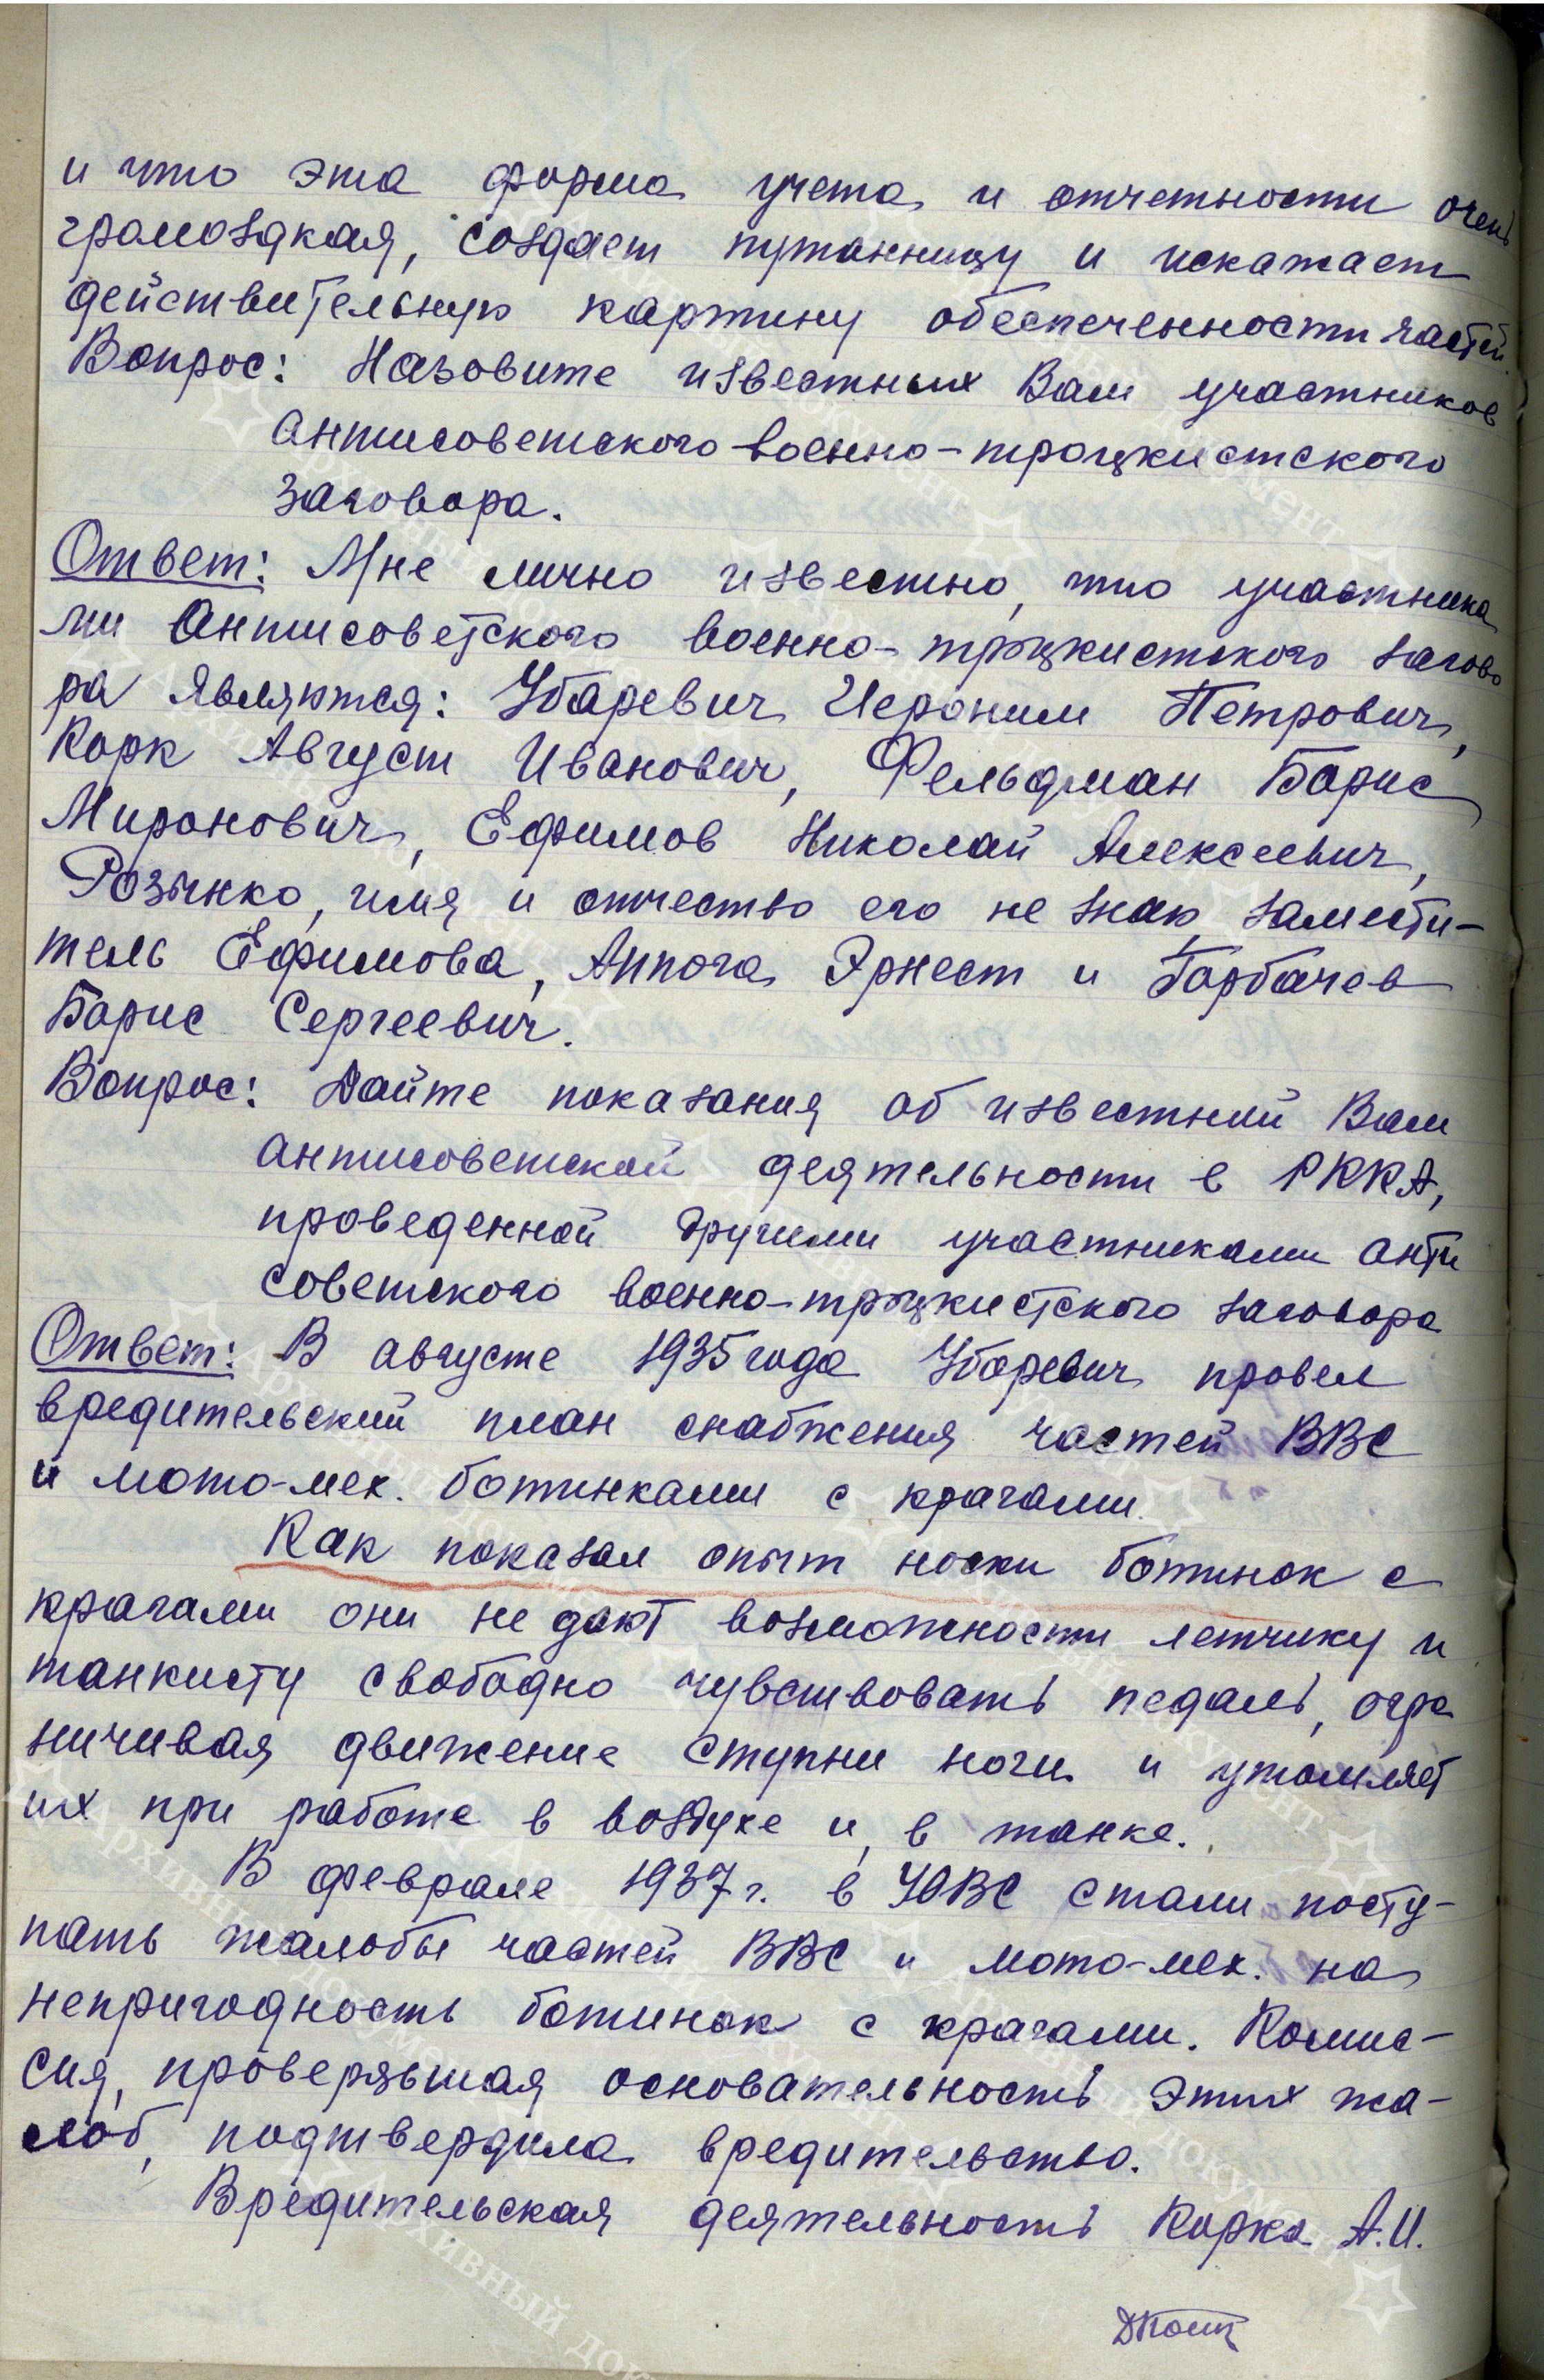 и что эта форма учета и отчетности очень
громоздкая, создает путанницу и искажает
действительную картину обеспеченности частей.
Вопрос: Назовите известных Вам участников
антисоветского военно-троцкистского
заговора.
Ответ: Мне лично известно, что участника
ми Антисоветского военно-троцкистского загово
ра являются: Убаревич Иероним Петрович,
Корк Август Иванович, Фельдман Борис
Миронович, Ефимов Николай Алексеевич,
Розынко, имя и отчество его не знаю, замести-
тель Ефимова, Аппога Эрнест и Горбачев
Борис Сергеевич.
Вопрос: Дайте показания об известной Вам
антисоветской деятельности в РККА,
проведенной другими участниками анти
советского военно-троцкистского заговора
Ответ: В августе 1935 года Убаревич провел
вредительский план снабжения частей ВВС
и мото-мех. ботинками с крагами.
Как показал опыт носки ботинок с
крагами они не дают возможности летчику и
танкисту свободно чувствовать педаль, огра
ничивая движение ступни ноги и утомляет
их при работе в воздухе и в танке.
В феврале 1937 г. в УОВС стали посту-
пать жалобы частей ВВС и мото-мех. на
непригодность ботинок с крагами. Комис-
сия, проверявшая основательность этих жа-
лоб, подтвердила вредительство.
Вредительская деятельность Корка А.И.